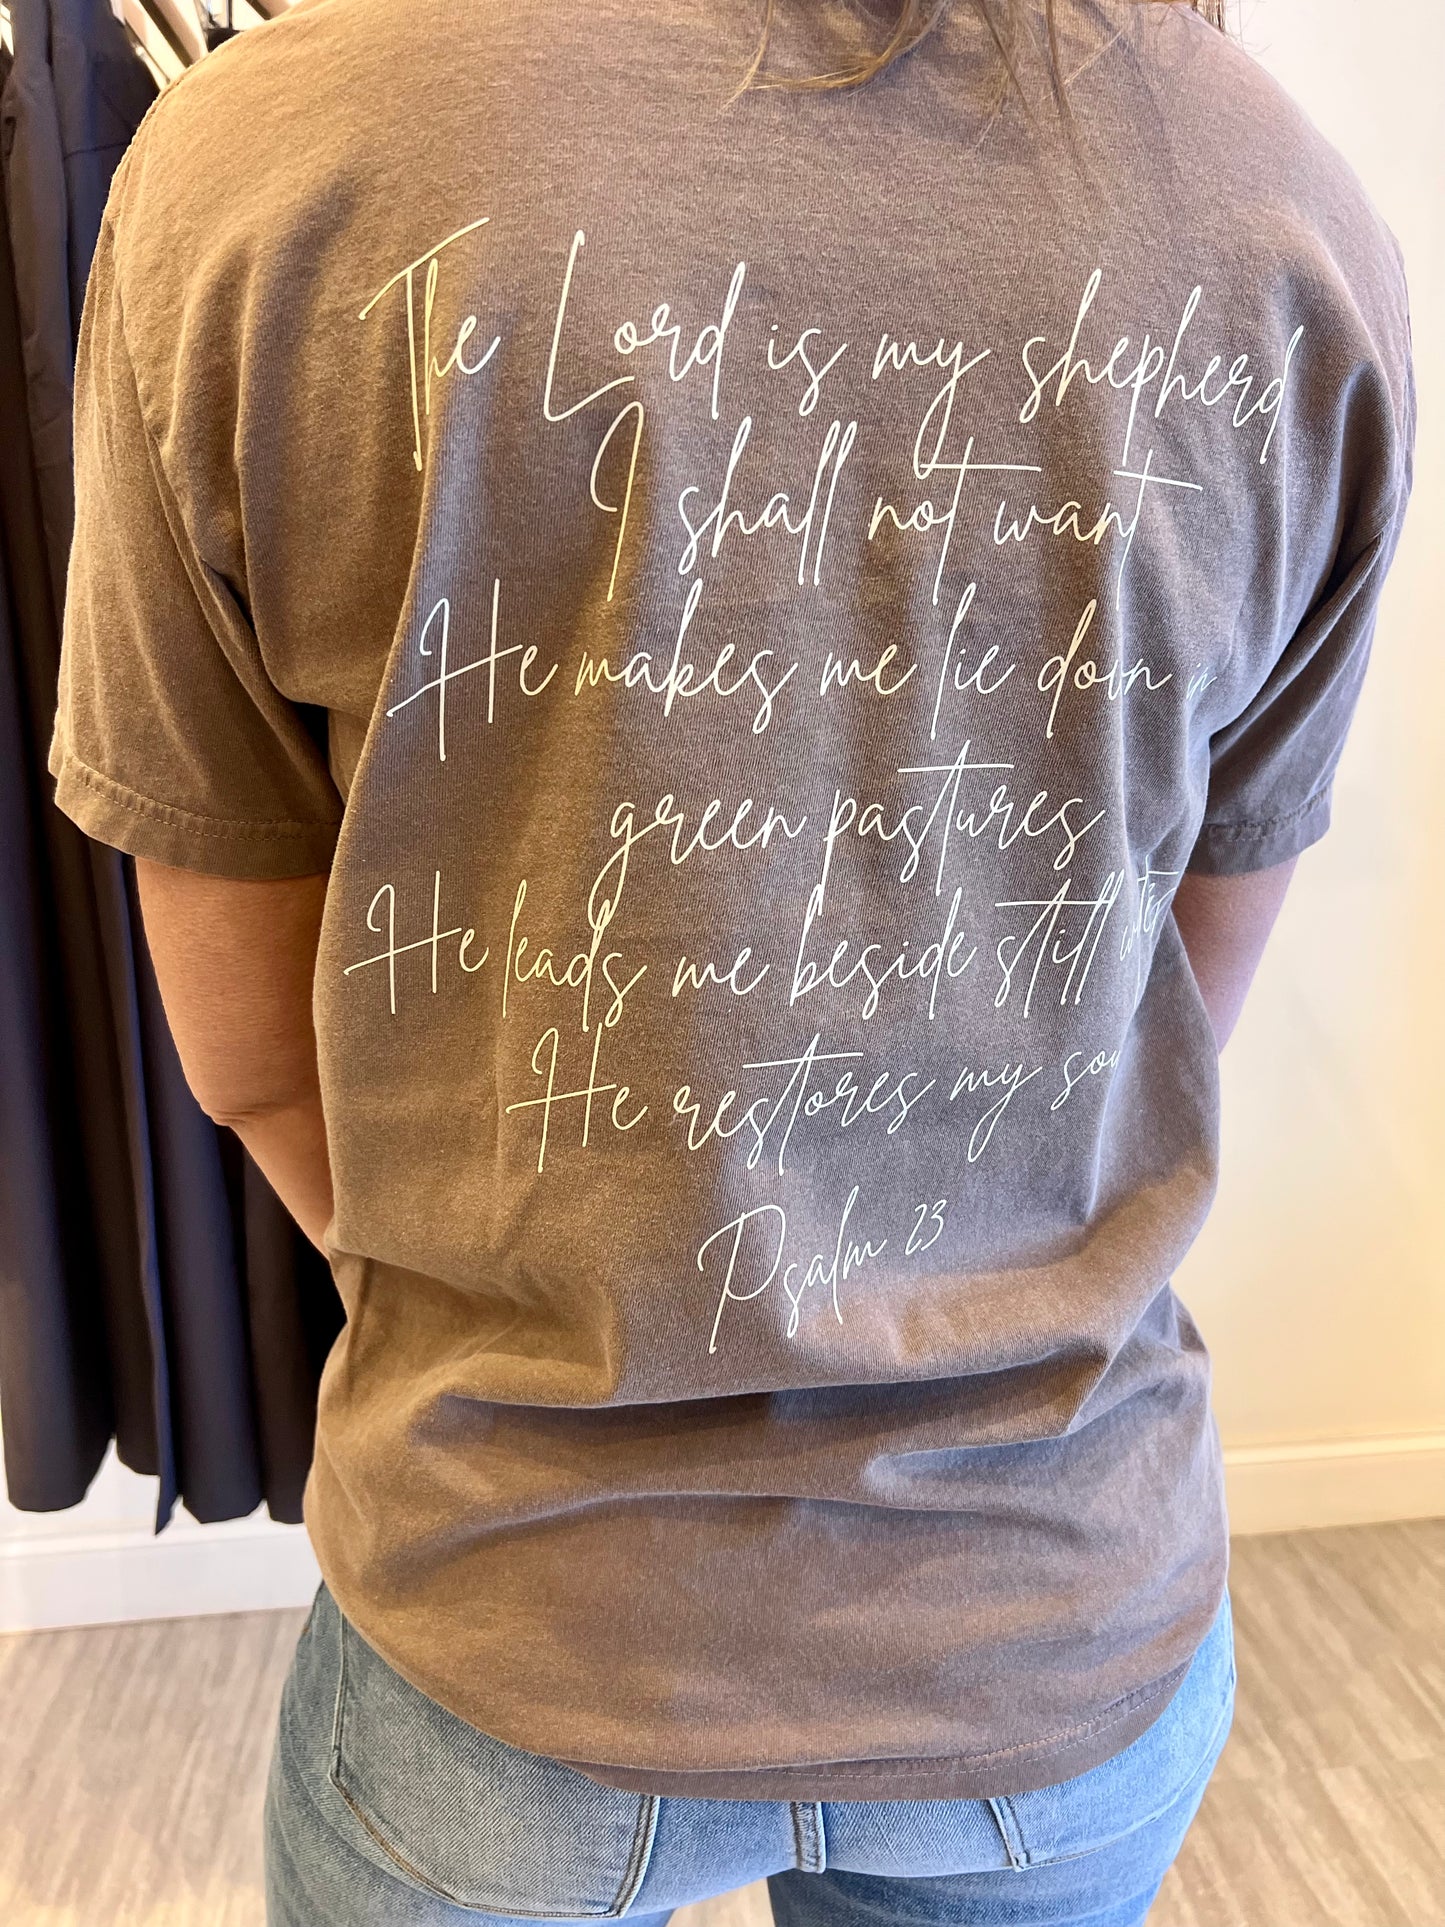 The Lord is my shepherd
I shall not want
He makes me lie down in
green pastures
He leads me beside still
He restores my
Psalm 23